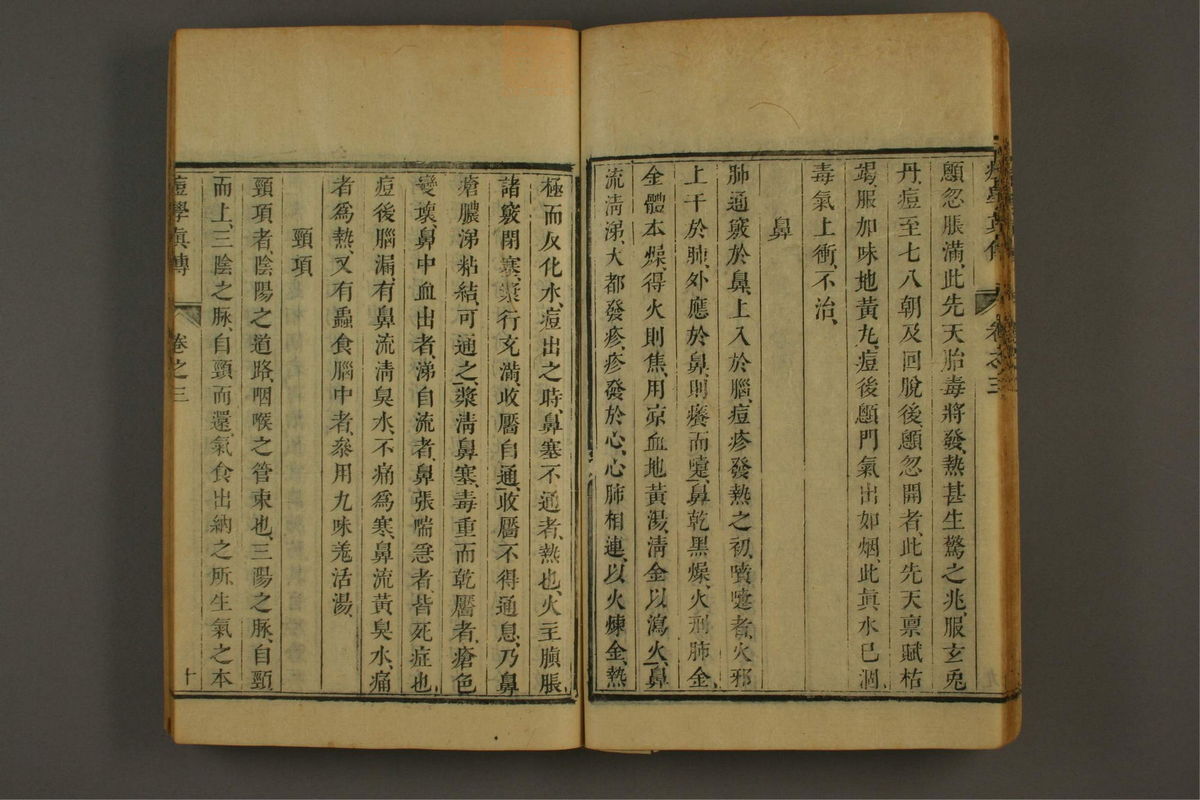 痘學眞傳 卷之三 九
顖忽脹滿此先天胎毒將發、熱甚生驚之兆、服玄兎
丹、痘至七八朝及回脫後顖忽開者、此先天禀賦枯
竭、服加味地黃九、痘後顖門氣出如烟、此眞水巳涸、
毒氣上衝、不治、
鼻
肺通竅於鼻、上入於腦、痘疹發熱之初、噴嚏者、火邪
上干於肺、外應於鼻、則癢而嚏、鼻乾黑燥、火刑肺金、
金體本燥、得火則焦、用凉血地黃湯、淸金以瀉火、鼻
流淸涕、大都發疹、疹發於心、心肺相連、以火煉金、熱
極而反化水、痘出之時、鼻塞不通者、熱也、火主䐜脹、
諸竅閉塞、漿行充滿、收靨自通、收靨不得通息、乃鼻
瘡膿涕粘結、可通之、漿淸鼻塞、毒重而乾靨者、瘡色
變壞、鼻中血出者、涕自流者、鼻張喘急者皆死症也、
痘後腦漏、有鼻流淸臭水、不痛爲寒、鼻流黃臭水、痛
者爲熱、又有蟲食腦中者、叅用九味羌活湯、
頸項
頸項者陰陽之道路、咽喉之管束也、三陽之脉、自頸
而上、三陰之脉、自頸而還、氣食出納之所、生氣之本
痘學眞傳 卷之三 十